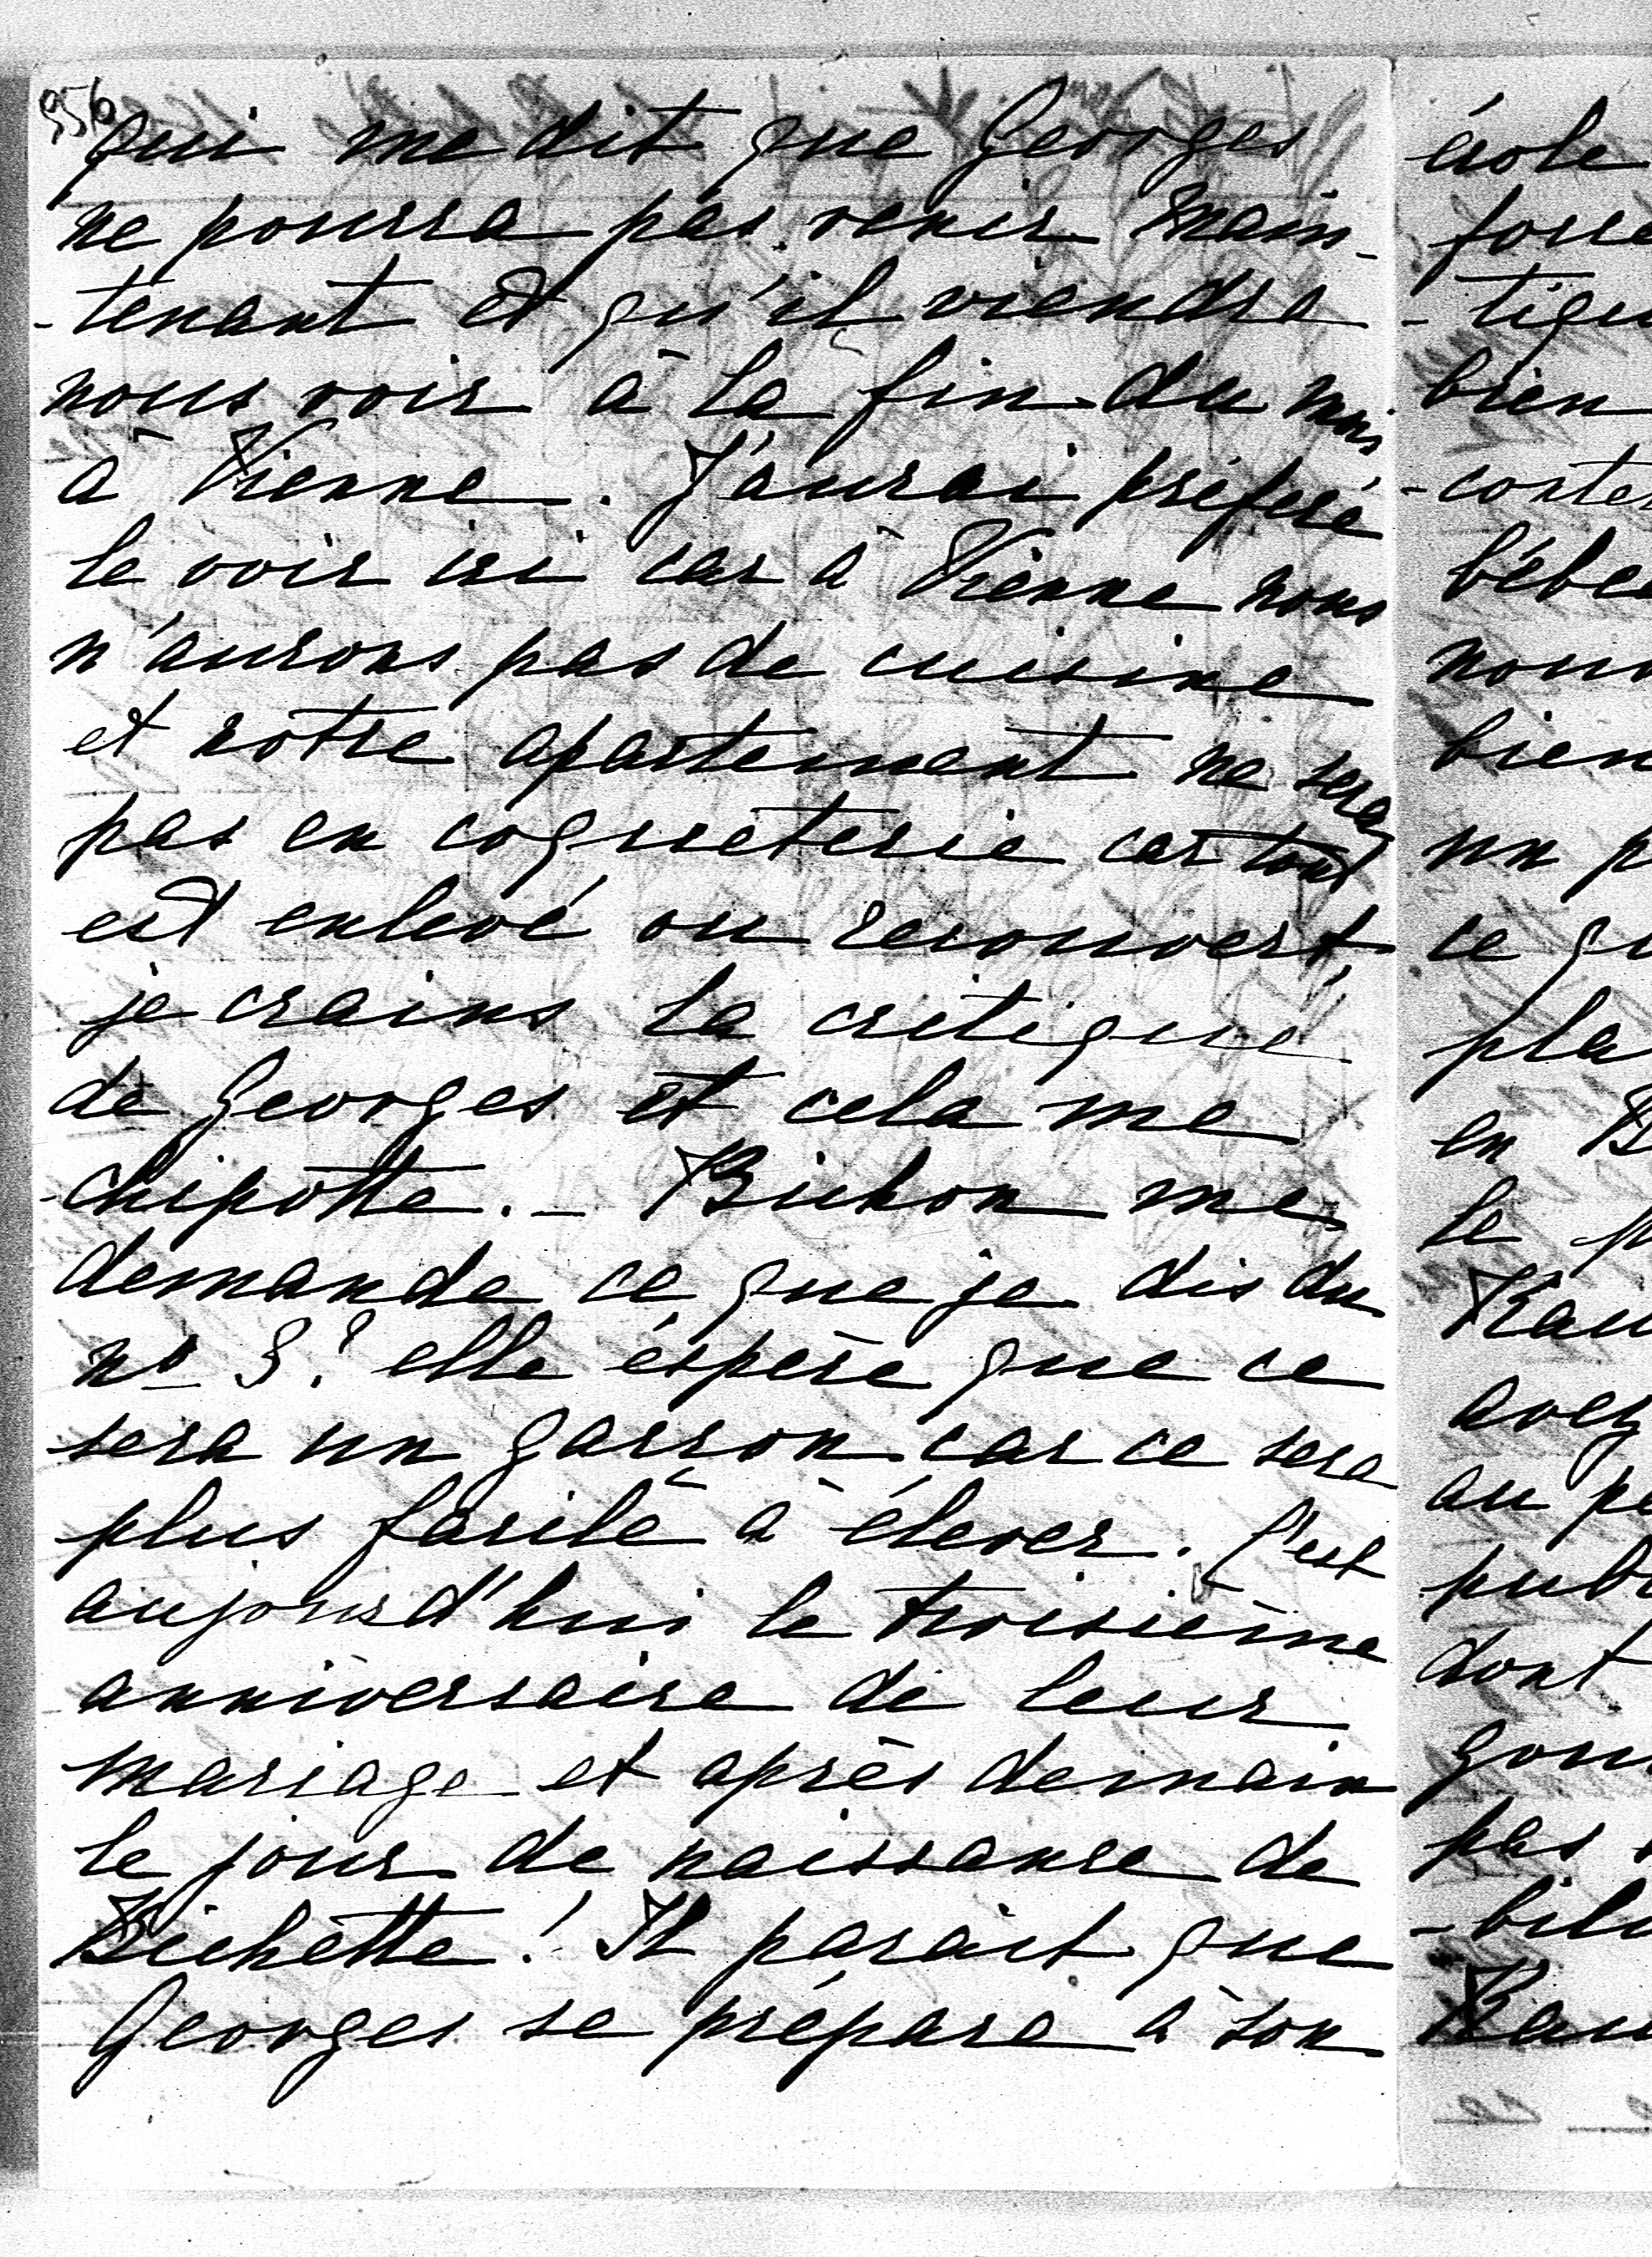 956
qui me dit que Georges
ne pourra pas venir main-
-tenant et qu'il viendra
nous voir à la fin du mois
à Vienne. J'aurai préféré
le voir ici car à Vienne nous
n'aurons pas de cuisine
et notre apartement ne sera
pas en coqueterie car tout
est enlevé ou recouvert,
je crains la critique
de Georges et cela me
chipotte. - Bichon me
demande ce que je dis du
no 3? elle éspère que ce
sera un garçon car ce sera
plus facile à élever. C'est
aujourd'hui le troisième
anniversaire de leur
mariage et après demain
le jour de naissance de
Bichette! Il parait que
Georges se prépare à son
école
force
-tique
bien
-conter
bébé
nous
bien
un p
ce qu
pla
en B
le p
Rau
avez
au pe
pub
dont
gou
pas
-bil
Rau